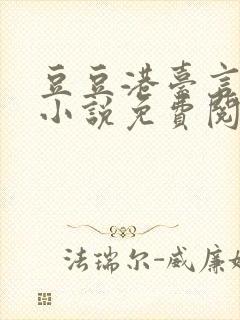 豆豆港臺言
小說免費閱
法瑞尔-威廉